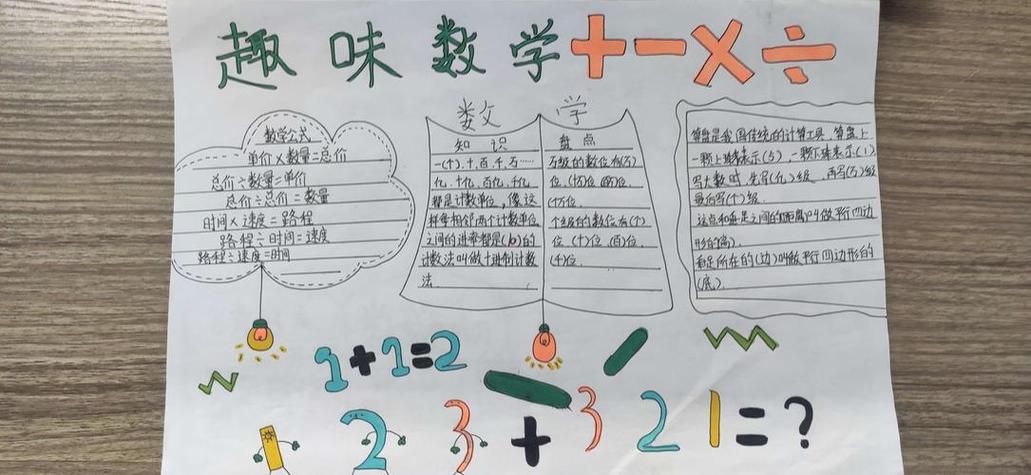 趣味数学+-×÷
数学公式
单价×数量=总价
总价÷数量=单价
总价÷总价=数量
时间×速度=路程
路程÷时间=速度
路程÷速度=时间
数学
知识
一(个),十,百,千,万……
亿,十亿,百亿,千亿
都是计数单位,像这
样每相邻两个计数单位
之间的进率都是(10)的
计数法叫做十进制计数
法.
盘点
万级的数位有(万)
位,(十万)位,(百万)位,
(千万)位.
个级的数位有(个)
位,(十)位,(百)位,
(千)位.
算盘是我国传统的计算工具,算盘上
一颗上珠表示(5),一颗下珠表示(1)
写大数时,先写(亿)级,再写(万)级
最后写(个)级.
这点和垂足之间的(距离)叫做平行四边
形的(高).
垂足所在的(边)叫做平行四边形的
(底).
1+1=2
1 2 3 + 3 2 1 = ?